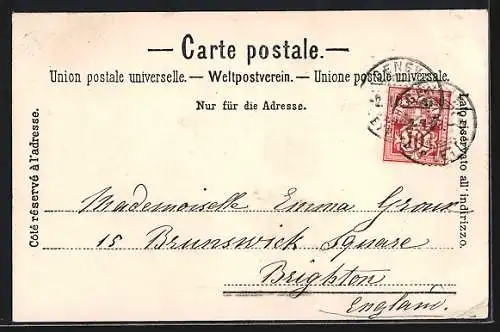 — Carte postale. —
Union postale universelle. — Weltpostverein. — Unione postale universale.
Nur für die Adresse.
Côté réservé à l'adresse.
Lato riservato all' indirizzo.
10
Mademoiselle Emma
15 Brunswick Square
Brighton
England.